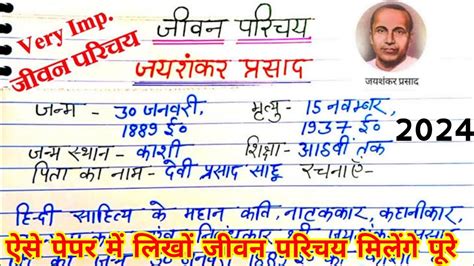 Very Imp.
जीवन परिचय
जीवन परिचय
जयशंकर प्रसाद
जयशंकर प्रसाद
जन्म – 30 जनवरी, 1889 ई०
मृत्यु- 15 नवम्बर, 1937 ई०
2024
जन्म स्थान – काशी
शिक्षा- आठवीं तक
पिता का नाम – देवी प्रसाद साहू
रचनाएँ-
हिन्दी साहित्य के महान कवि, नाटककार, कहानीकार,
ऐसे पेपर में लिखों जीवन परिचय मिलेंगे पूरे